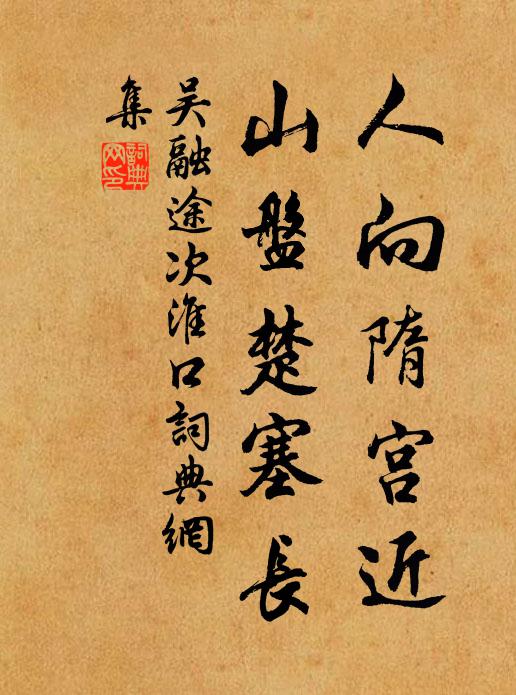 人向隋宫近
山盤楚塞長
吴融途次淮口詞典網
集
詞典網印